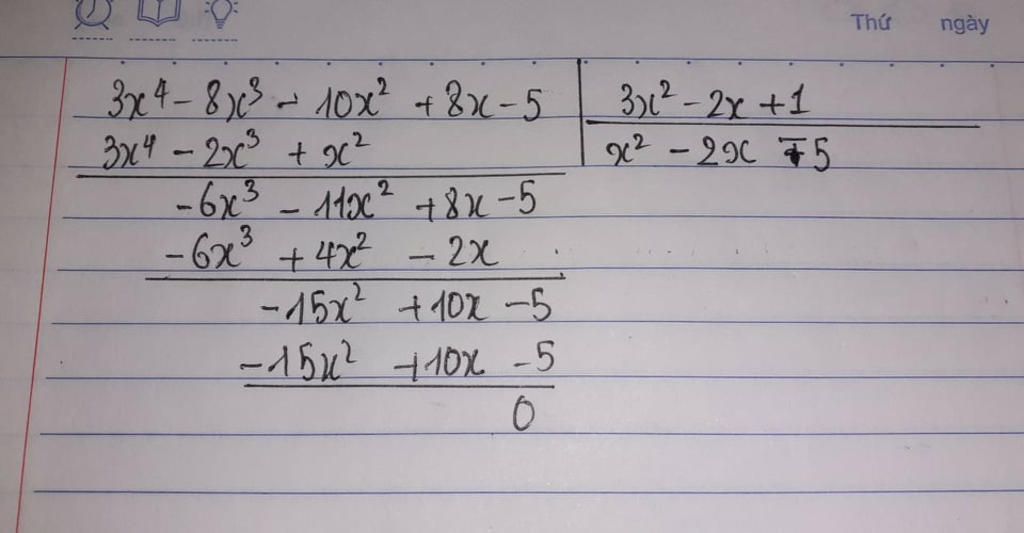 Thứ ngày
3x⁴ - 8x³ - 10x² + 8x - 5 | 3x² - 2x + 1
3x⁴ - 2x³ + x² | x² - 2x - 5
-6x³ - 11x² + 8x - 5
-6x³ + 4x² - 2x
-15x² + 10x - 5
-15x² + 10x - 5
0